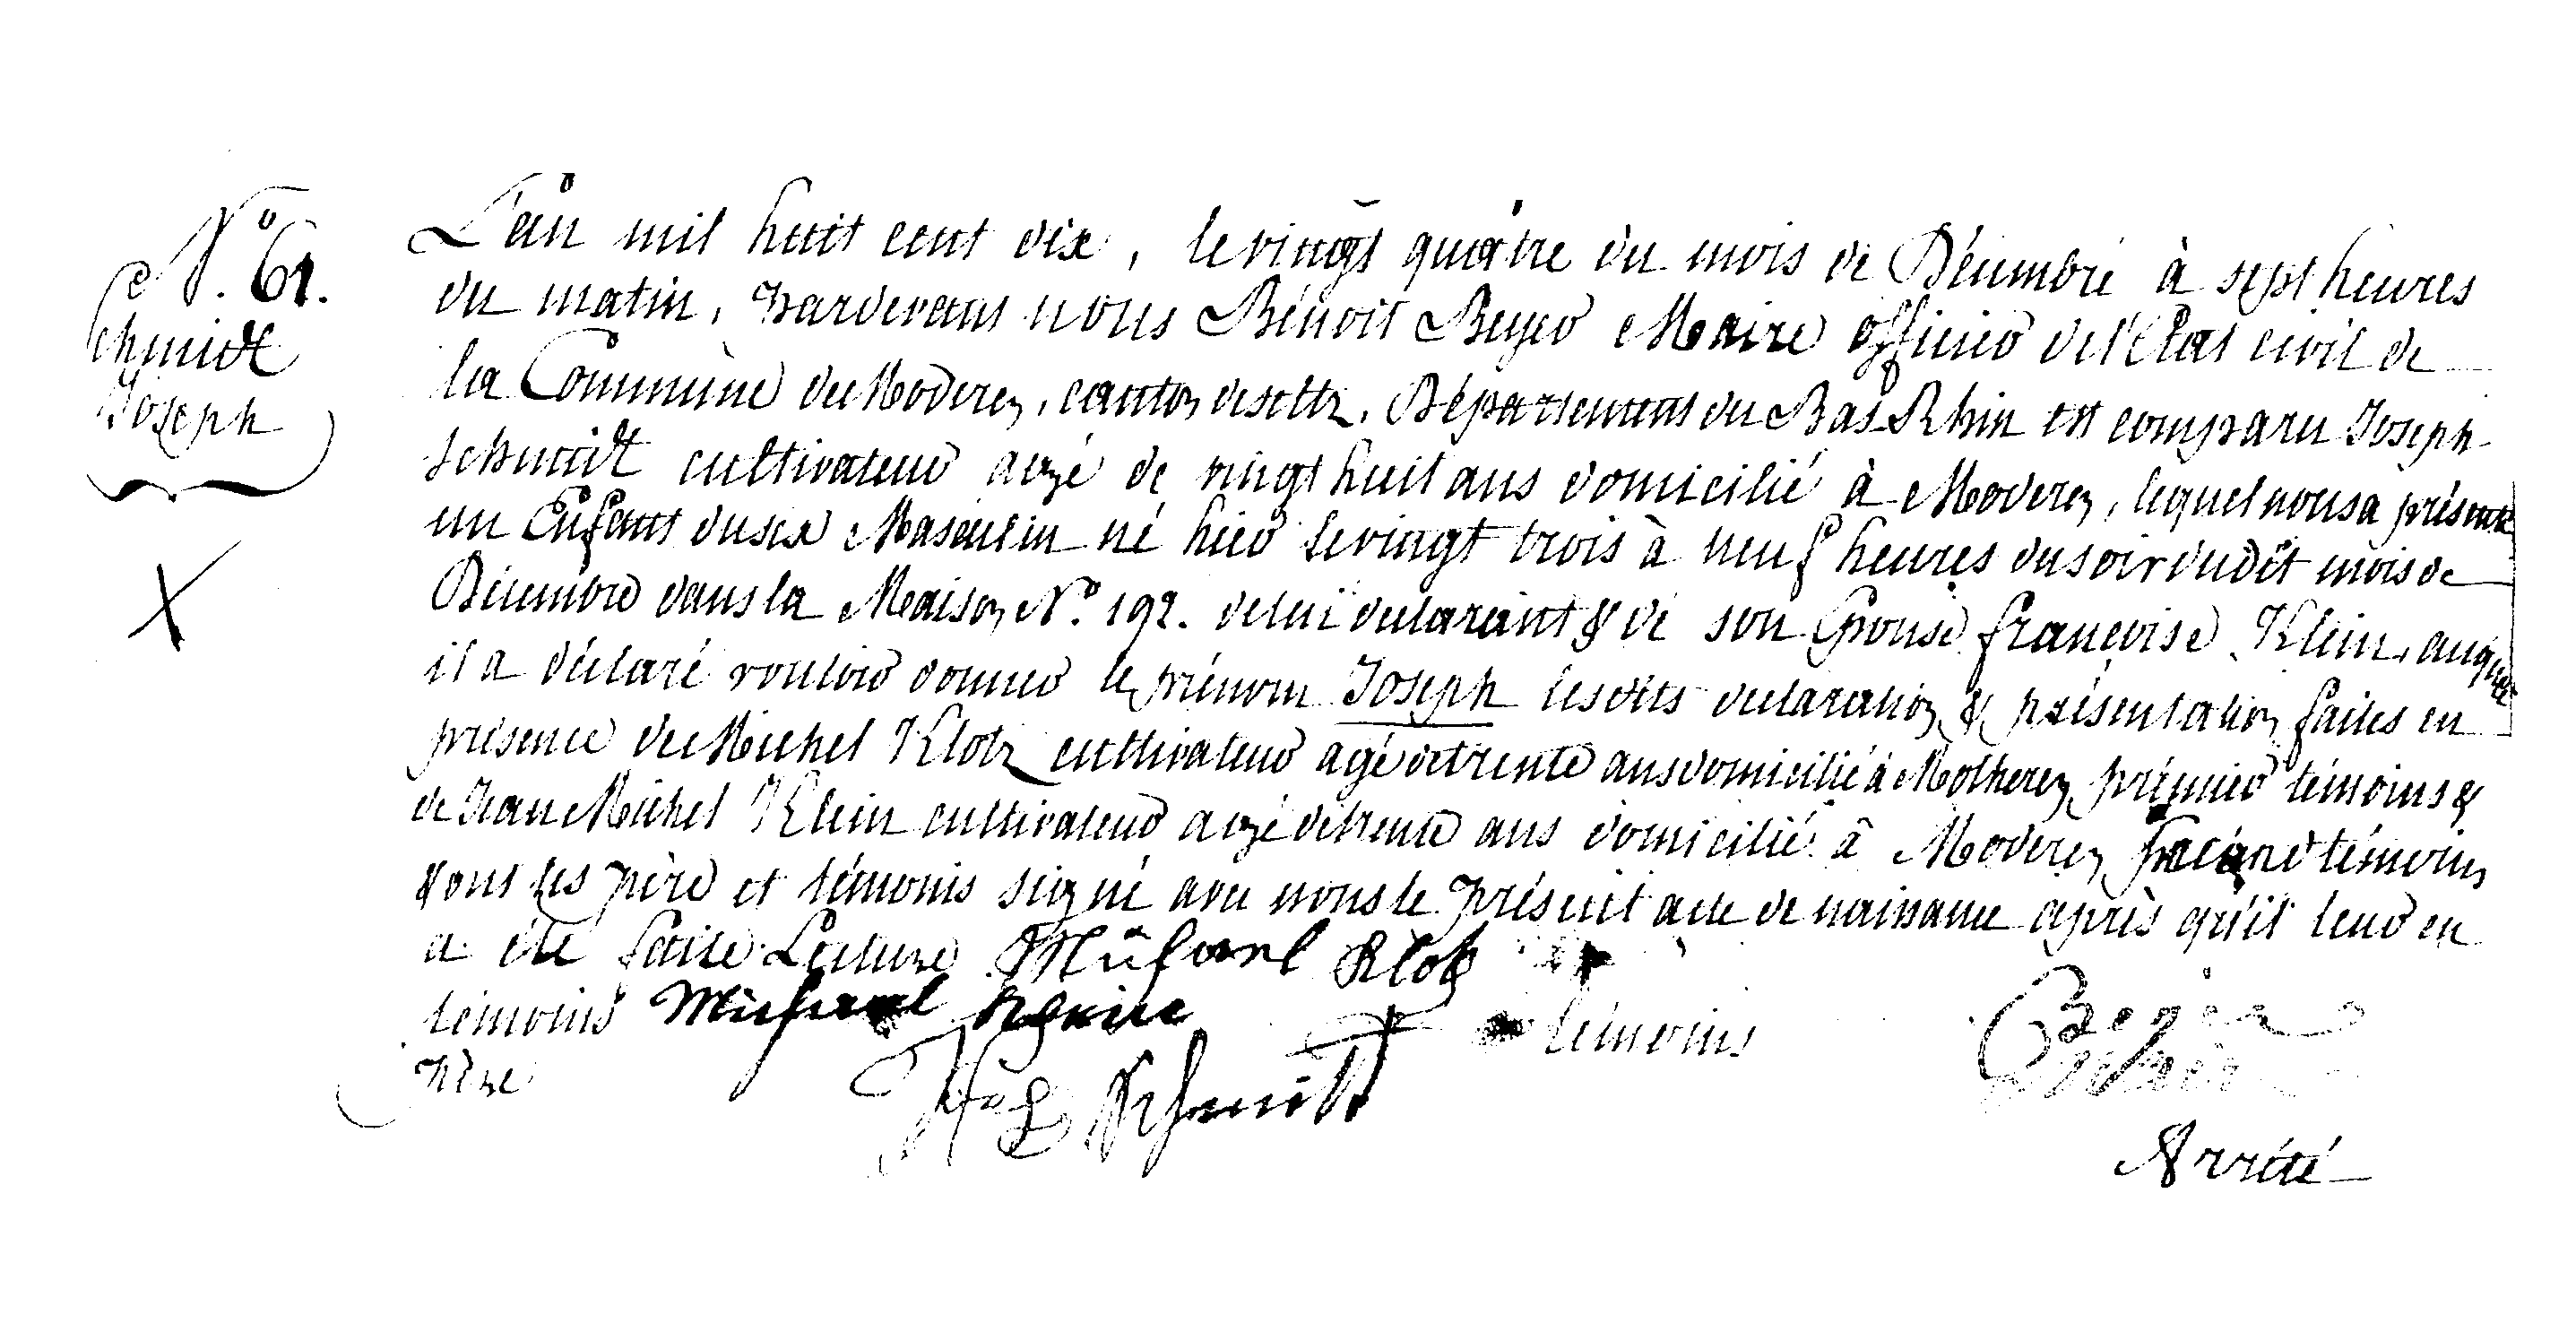 N.º 61.
Schmidt
Joseph
L'an mil huit cent dix, le vingt quatre du mois de Décembre à sept heures
du matin, pardevant nous Bénoit Beyer Maire officier de l'Etat civil de
la Commune de Moderen, canton de Seltz, Département du Bas-Rhin est comparu Joseph
Schmidt cultivateur agé de vingt huit ans domicilié à Moderen, lequel nous a présenté
un Enfant du sex Masculin né hier le vingt trois à neuf heures du soir dudit mois de
Décembre dans la Maison N.º 192. de lui declarant & de son Epouse françoise Klein, auquel
il a déclaré vouloir donner le prénom Joseph lesdits declaration & présentation faites en
présence de Michel Klotz cultivateur agé de trente ans domicilié à Motheren prémier témoins &
de Jean Michel Klein cultivateur agé de trente ans domicilié à Moderen second témoins
& ont les père et témoins signé avec nous le présent acte de naissance après qu'il leur en
a été faite Lecture Michael Klotz
témoins Michael Klein témoins
père Schmitt
Beyer
Arrêté